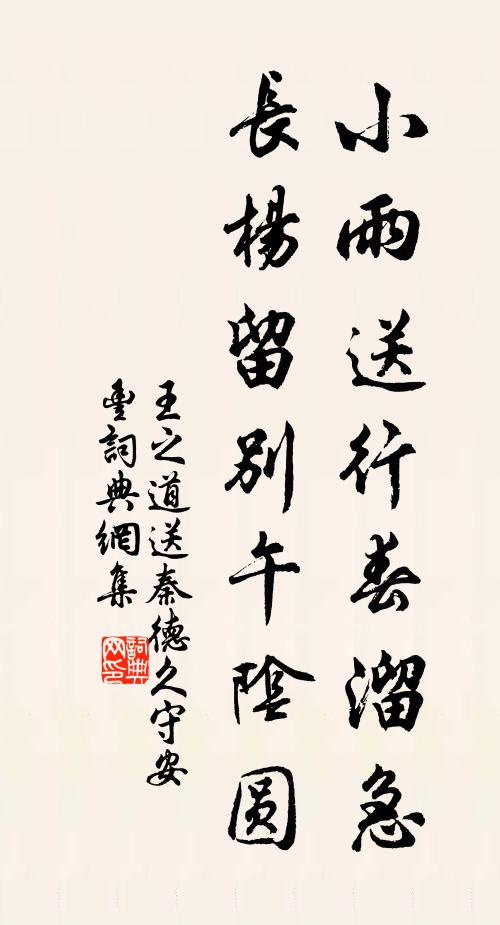 小雨送行春溜急
長楊留別午陰圓
王之道送秦德久守安
豐詞典網集
詞典
网印